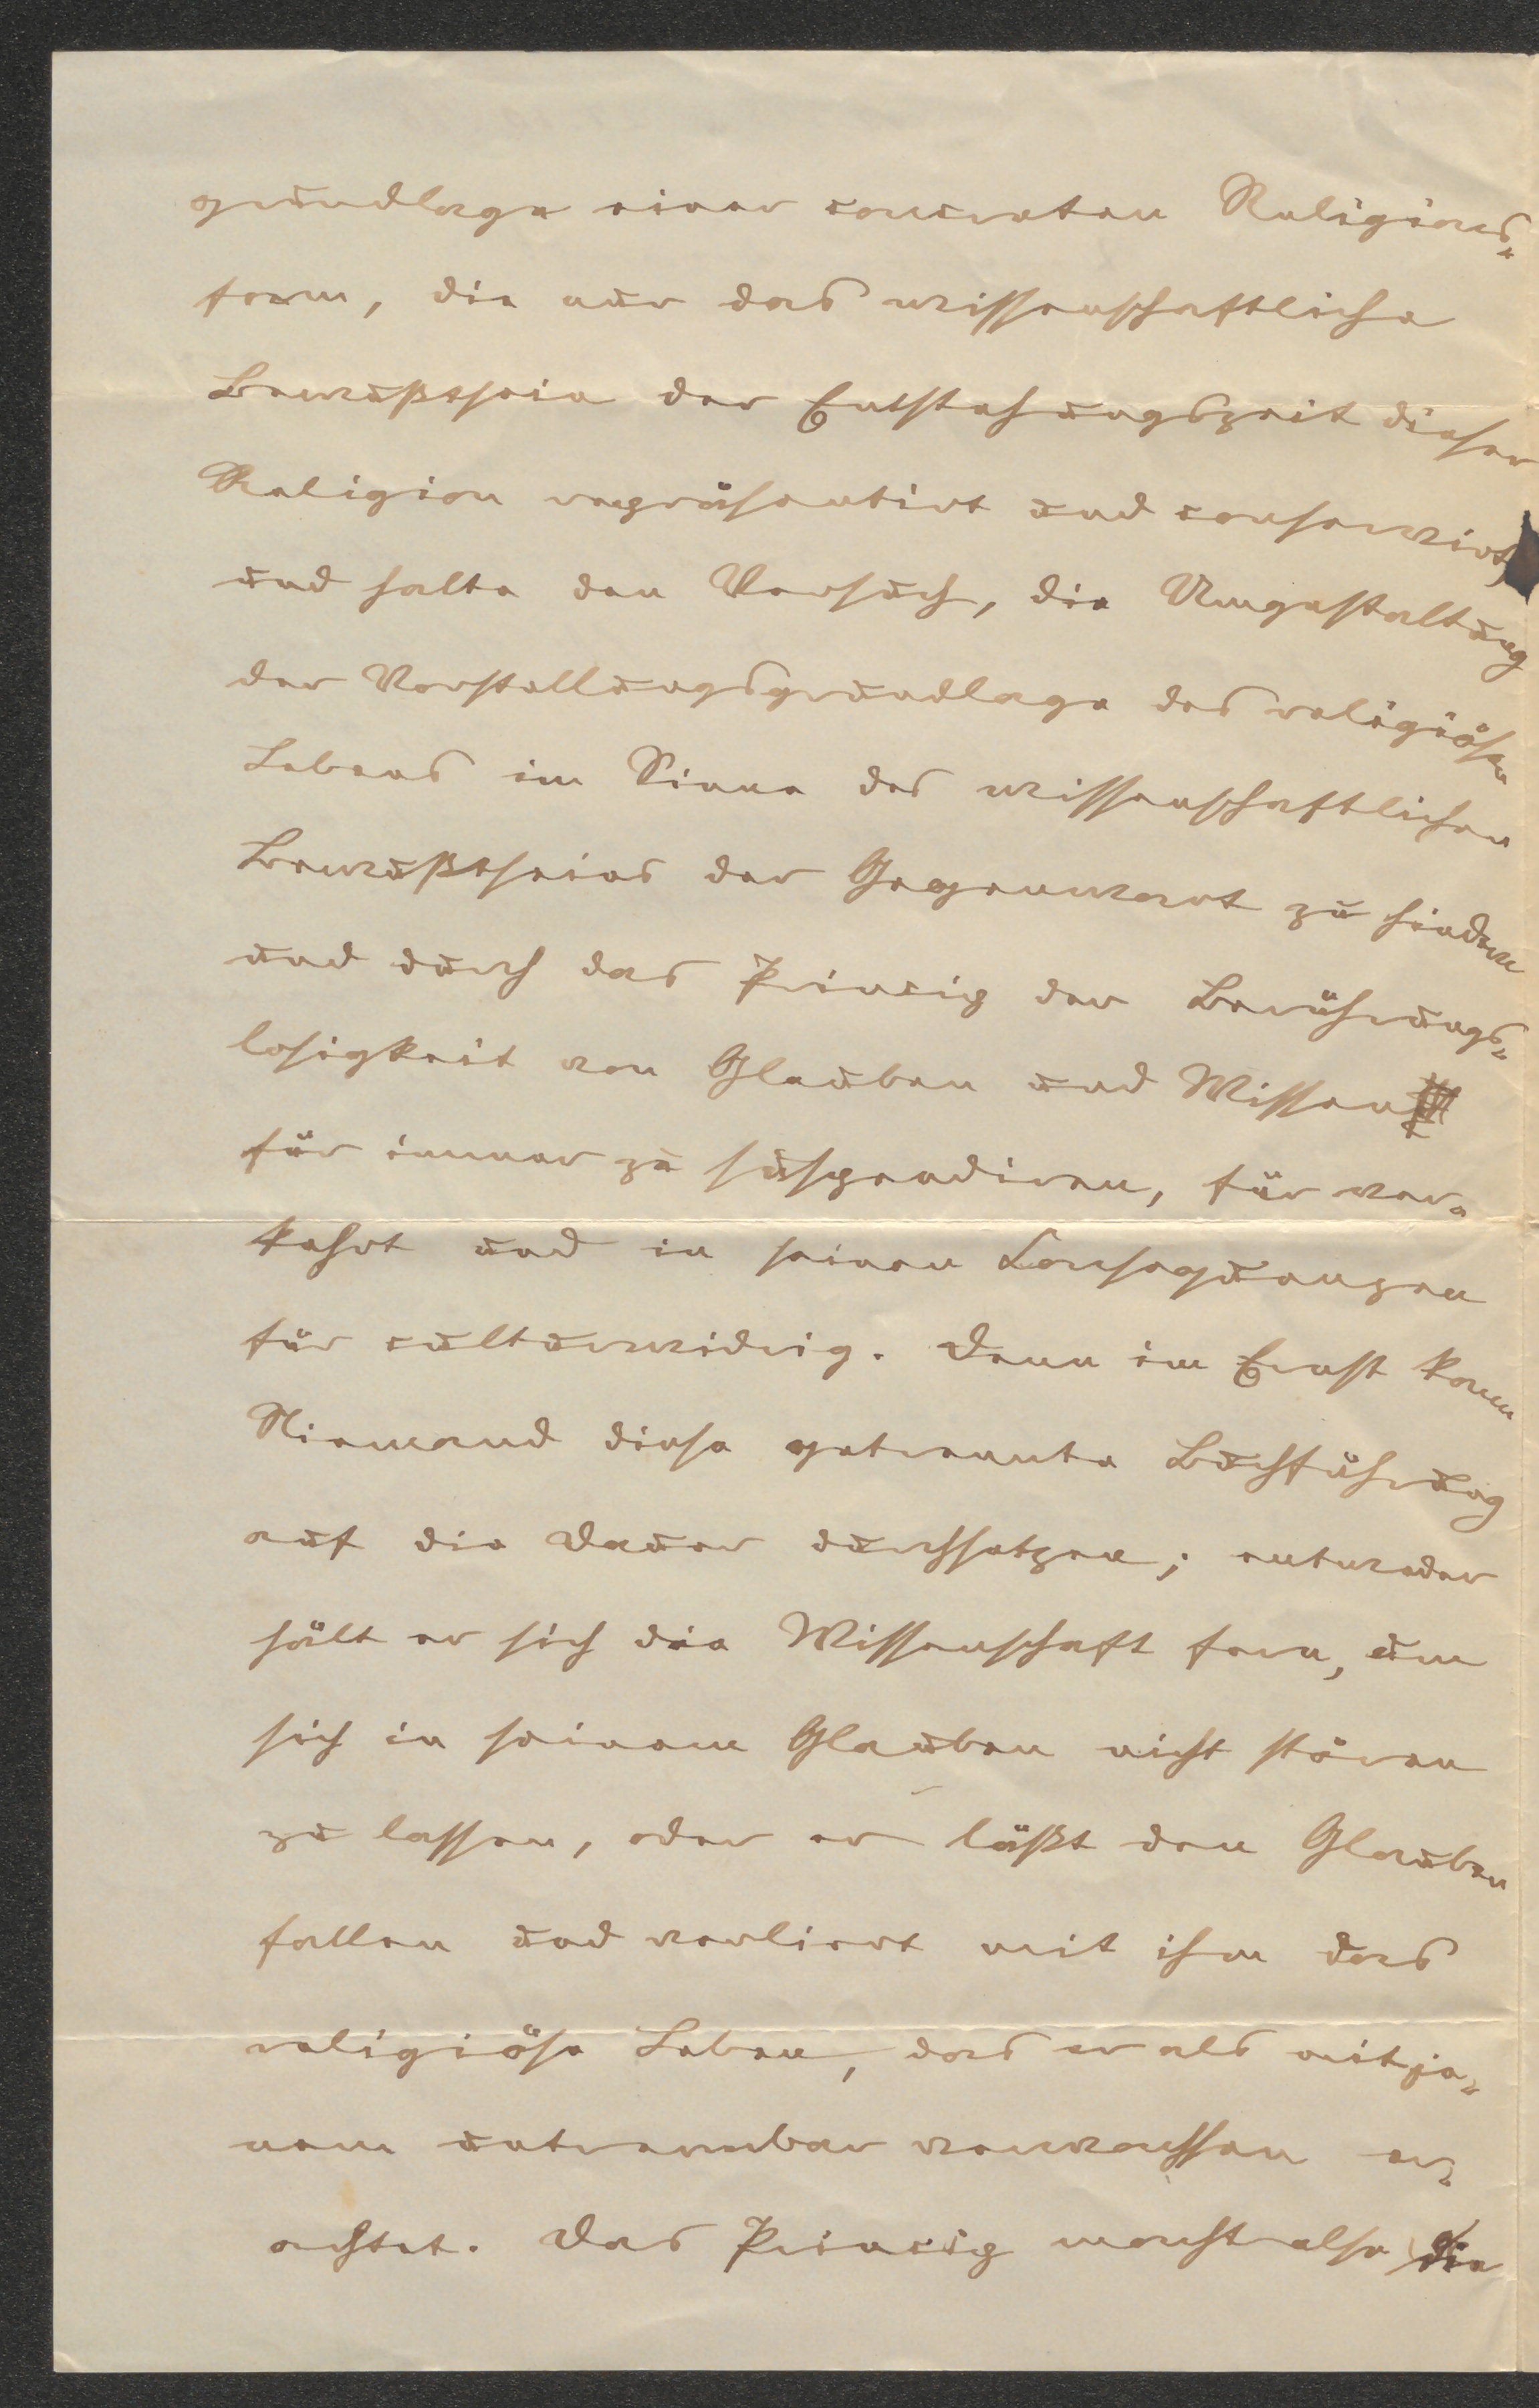 grundlage einer concreten Religions-
form, die nur das wissenschaftliche
Bewußtsein der Entstehungszeit dieser
Religion repräsentirt und conservirt,
und halte den Versuch, die Umgestaltung
der Vorstellungsgrundlage des religiösen
Lebens im Sinne des wissenschaftlichen
Bewußtseins der Gegenwart zu hindern
und durch das Princip der Berührungs-
losigkeit von Glauben und Wissen
für immer zu suspendiren, für ver-
kehrt und in seinen Consequenzen
für culturwidrig. Denn im Ernst kann
Niemand diese getrennte Buchführung
auf die Dauer durchsetzen; entweder
hält er sich die Wissenschaft fern, um
sich in seinem Glauben nicht stören
zu lassen, oder er läßt den Glauben
fallen und verliert mit ihm das
religiöse Leben, das er als mit je-
nem untrennbar verwachsen er-
achtet. Das Princip macht also die